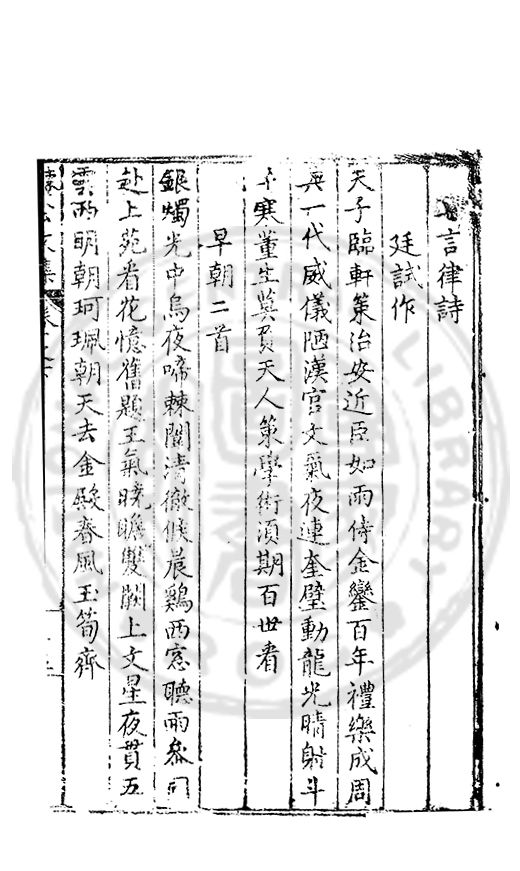 七言律詩
廷試作
天子臨軒策治安近臣如雨侍金鑾百年禮樂成周
典一代威儀陋漢宮文氣夜連奎璧動龍光晴射斗
牛寒董生莫負天人策學術須期百世看
早朝二首
銀燭光中烏夜啼棘闈清徹候晨鷄西窓聽雨
赴上苑看花憶舊題王氣曉瞻雙闕上文星夜貫五
雲西明朝珂珮朝天去金殿春風玉筍齊
文集
LIBRARY